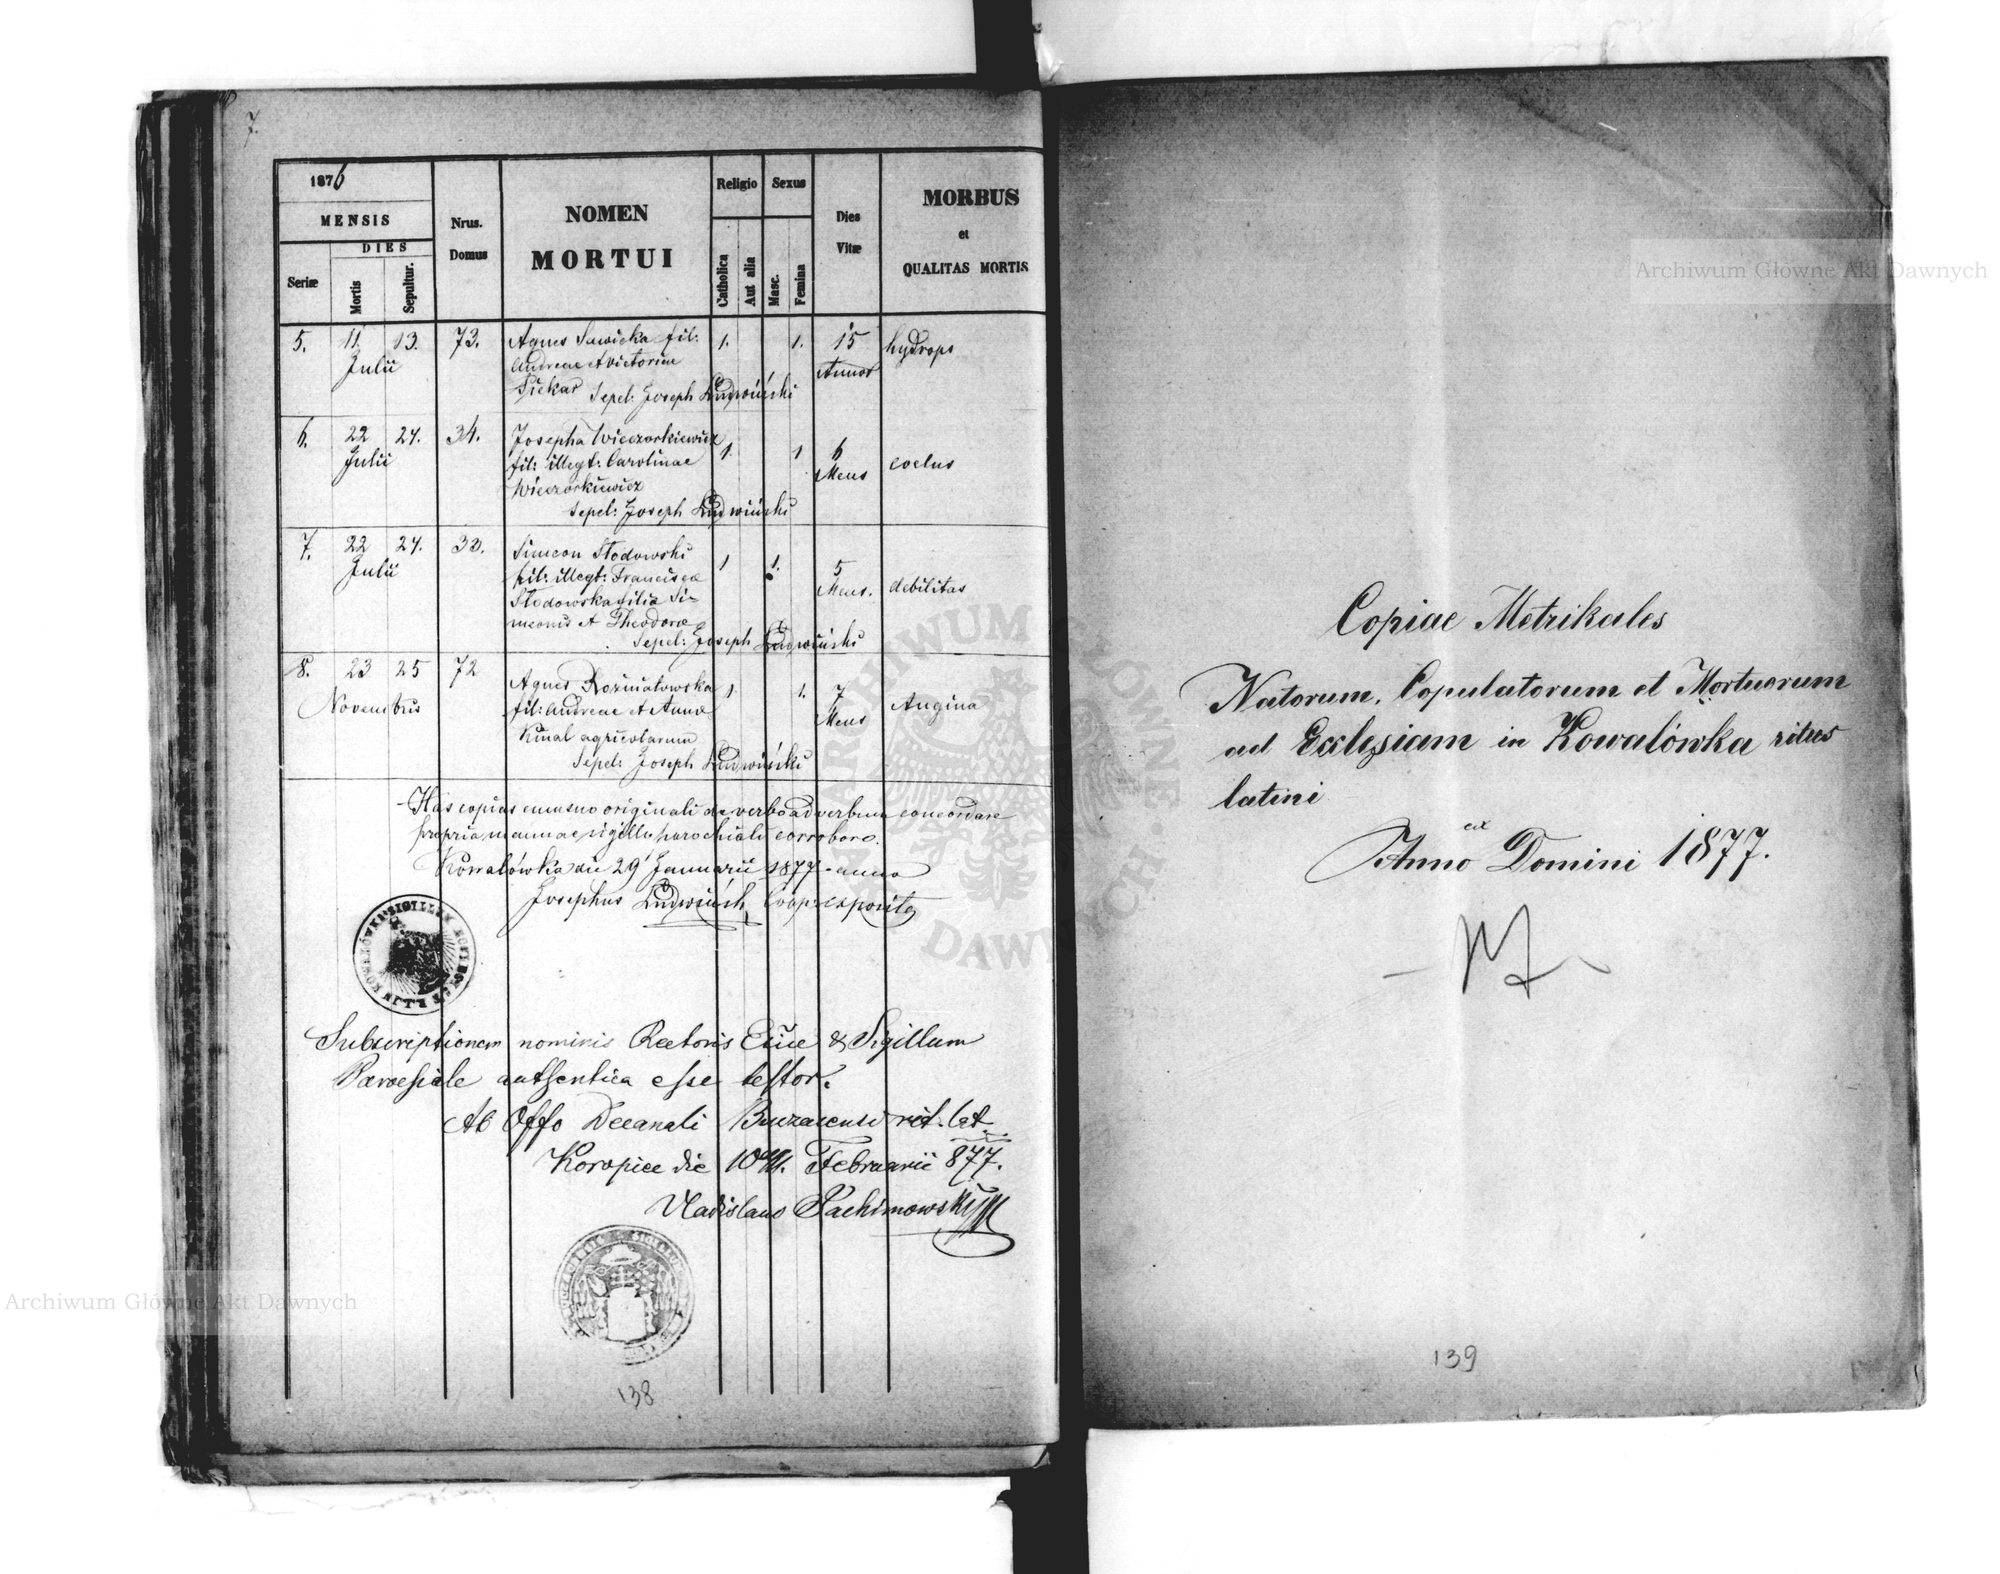 7.
1876
MENSIS
DIES
Seriæ
Mortis
Sepultur.
Nrus.
Domus
NOMEN
MORTUI
Religio
Catholica
Aut alia
Sexus
Masc.
Femina
Dies
Vitæ
MORBUS
et
QUALITAS MORTIS
5. 11. 13. 73. Agnes Sawicka fil: 1. 1. 15 hydrops
Julii Andreae et Victoriae Annor
Siekar Sepel: Joseph Ludwiński
6. 22 24. 34. Josepha Wieczorkiewicz 1. 1 6
Julii fil: illegt: Carolinae Mens
Wieczorkiewicz
Sepel: Joseph Ludwiński
7. 22 24. 33. Simeon Stodowski 1 1. 5
Julii fil: illegt: Franciscæ Mens. debilitas
Stodowska filia Si-
meonis et Theodoræ
Sepel: Joseph Ludwiński
8. 23 25 72 Agnes Rozmatowska 1. 1. 7 Angina
Novembris fil: Andreae et Annæ Mens
Kinal agricolarum
Sepel: Joseph Ludwiński
Has copias cum suo originali de verbo ad verbum concordare
propria manu ac sigillo parochiali corroboro.
Kowalówka die 29 Januarii 1877 anno
Josephus Ludwiński Coop: exposita
Subscriptionem nominis Rectoris Ecciae & Sigillum
Paroesiale authentica esse testor.
Ab Offo Decanali Buczacensi rit. lat.
Koropice die 10 Februarii 877.
Vladislaus Jachimowski
138
Copiae Metrikales
Natorum, Copulatorum et Mortuorum
ad Ecclesiam in Kowalówka ritus
latini
ex
Anno Domini 1877.
139
Archiwum Główne Akt Dawnych
Archiwum Główne Akt Dawnych
ARCHIWUM GŁÓWNE AKT DAWNYCH